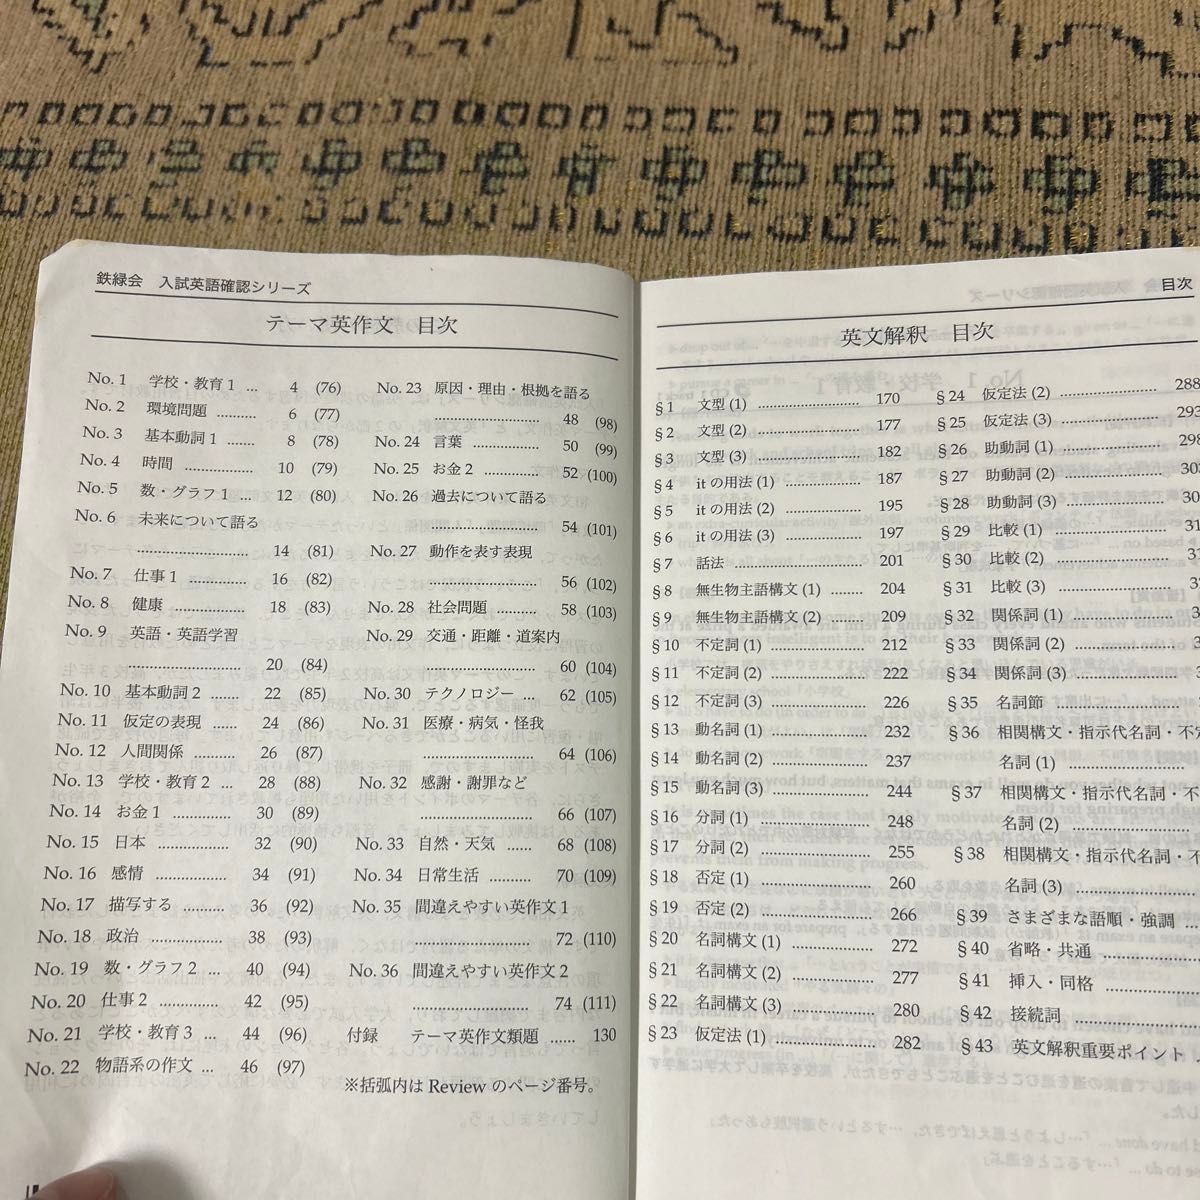 鉄緑会 入試英語確認シリーズ
テーマ英作文 目次
No. 1 学校・教育 1 ... 4 (76)
No. 2 環境問題 .......... 6 (77)
No. 3 基本動詞 1 ........ 8 (78)
No. 4 時間 ................ 10 (79)
No. 5 数・グラフ 1 ... 12 (80)
No. 6 未来について語る
.......................... 14 (81)
No. 7 仕事 1 ............. 16 (82)
No. 8 健康 ................ 18 (83)
No. 9 英語・英語学習
.......................... 20 (84)
No. 10 基本動詞 2 ........ 22 (85)
No. 11 仮定の表現 ....... 24 (86)
No. 12 人間関係 .......... 26 (87)
No. 13 学校・教育 2 ... 28 (88)
No. 14 お金 1 ............. 30 (89)
No. 15 日本 ................ 32 (90)
No. 16 感情 ................ 34 (91)
No. 17 描写する .......... 36 (92)
No. 18 政治 ................ 38 (93)
No. 19 数・グラフ 2 ... 40 (94)
No. 20 仕事 2 ............. 42 (95)
No. 21 学校・教育 3 ... 44 (96)
No. 22 物語系の作文 ... 46 (97)
No. 23 原因・理由・根拠を語る
.......................... 48 (98)
No. 24 言葉 ................ 50 (99)
No. 25 お金 2 ............. 52 (100)
No. 26 過去について語る
.......................... 54 (101)
No. 27 動作を表す表現
.......................... 56 (102)
No. 28 社会問題 .......... 58 (103)
No. 29 交通・距離・道案内
.......................... 60 (104)
No. 30 テクノロジー ... 62 (105)
No. 31 医療・病気・怪我
.......................... 64 (106)
No. 32 感謝・謝罪など
.......................... 66 (107)
No. 33 自然・天気 ...... 68 (108)
No. 34 日常生活 .......... 70 (109)
No. 35 間違えやすい英作文 1
.......................... 72 (110)
No. 36 間違えやすい英作文 2
.......................... 74 (111)
付録 テーマ英作文類題 ...... 130
※括弧内は Review のページ番号。
目次
英文解釈 目次
§ 1 文型 (1) ....................... 170
§ 2 文型 (2) ....................... 177
§ 3 文型 (3) ....................... 182
§ 4 it の用法 (1) ................. 187
§ 5 it の用法 (2) ................. 195
§ 6 it の用法 (3) ................. 197
§ 7 話法 ........................... 201
§ 8 無生物主語構文 (1) ....... 204
§ 9 無生物主語構文 (2) ....... 209
§ 10 不定詞 (1) .................... 212
§ 11 不定詞 (2) .................... 222
§ 12 不定詞 (3) .................... 226
§ 13 動名詞 (1) .................... 232
§ 14 動名詞 (2) .................... 237
§ 15 動名詞 (3) .................... 244
§ 16 分詞 (1) ....................... 248
§ 17 分詞 (2) ....................... 255
§ 18 否定 (1) ....................... 260
§ 19 否定 (2) ....................... 266
§ 20 名詞構文 (1) ................. 272
§ 21 名詞構文 (2) ................. 277
§ 22 名詞構文 (3) ................. 280
§ 23 仮定法 (1) .................... 282
§ 24 仮定法 (2) .................... 288
§ 25 仮定法 (3) .................... 293
§ 26 助動詞 (1) .................... 298
§ 27 助動詞 (2) ....................
§ 28 助動詞 (3) ....................
§ 29 比較 (1) .......................
§ 30 比較 (2) .......................
§ 31 比較 (3) .......................
§ 32 関係詞 (1) ....................
§ 33 関係詞 (2) ....................
§ 34 関係詞 (3) ....................
§ 35 名詞節 .......................
§ 36 相関構文・指示代名詞・不
名詞 (1) .......................
§ 37 相関構文・指示代名詞・不
名詞 (2) .......................
§ 38 相関構文・指示代名詞・不
名詞 (3) .......................
§ 39 さまざまな語順・強調 ...
§ 40 省略・共通 .................
§ 41 挿入・同格 .................
§ 42 接続詞 .......................
§ 43 英文解釈重要ポイント .